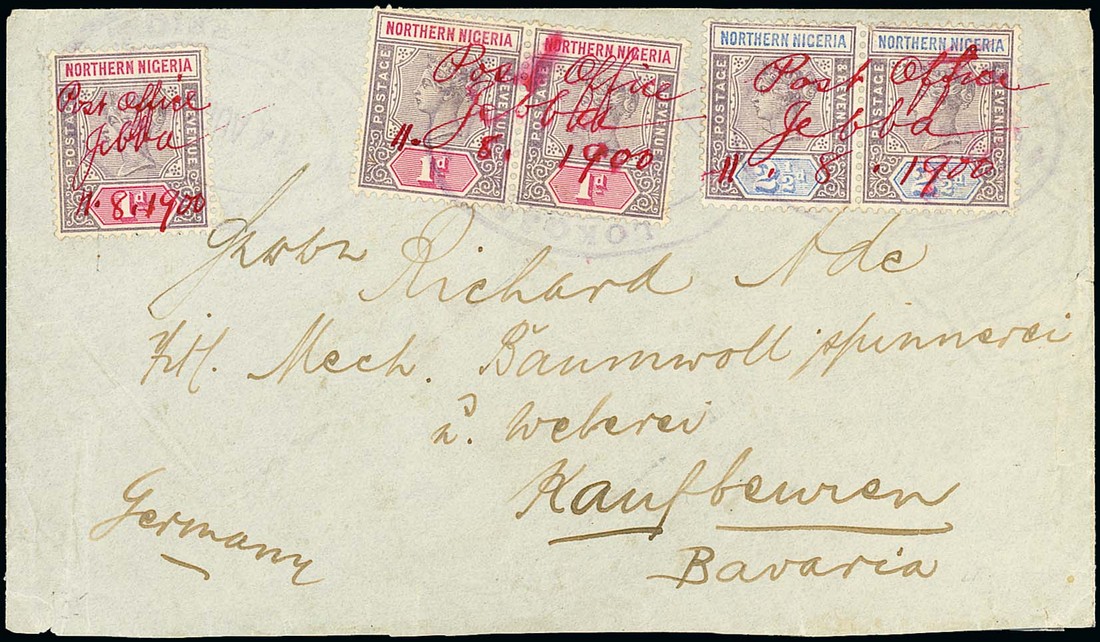 NORTHERN NIGERIA
POSTAGE & REVENUE
1d
Post Office
Jebba
11. 8. 1900
NORTHERN NIGERIA NORTHERN NIGERIA
POSTAGE & REVENUE
1d 1d
Post Office
Jebba
11. 8. 1900
NORTHERN NIGERIA NORTHERN NIGERIA
POSTAGE & REVENUE
2½d 2½d
Post Office
Jebba
11. 8. 1900
LOKOJA
Herrn Richard Ade
Mech. Baumwollspinnerei
u. Weberei
Kaufbeuren
Bavaria
Germany